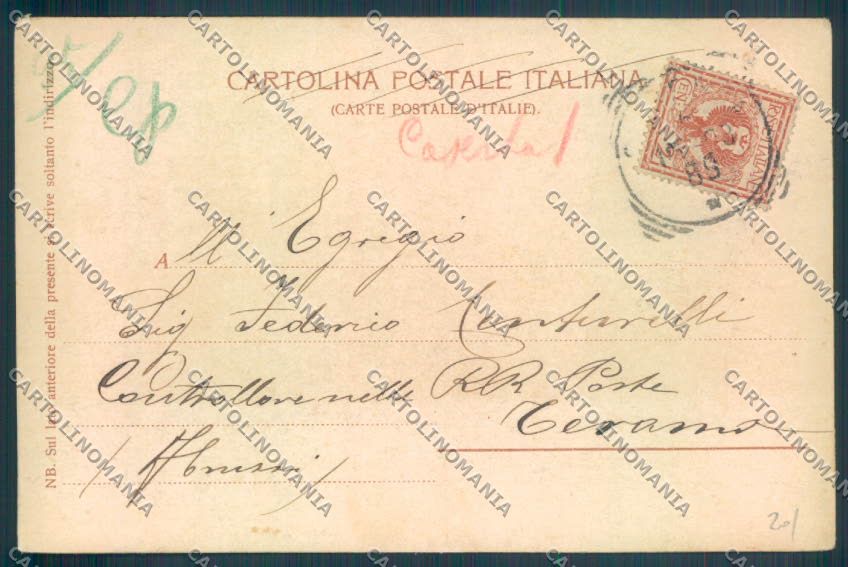 CARTOLINA POSTALE ITALIANA
(CARTE POSTALE D'ITALIE).
Caserta
NB. Sul lato anteriore della presente si scrive soltanto l'indirizzo.
A All' Egregio
Sig Federico Venturelli
Controllore nelle RR Poste
Teramo
(Abruzzi)
20/
CARTOLINOMANIA